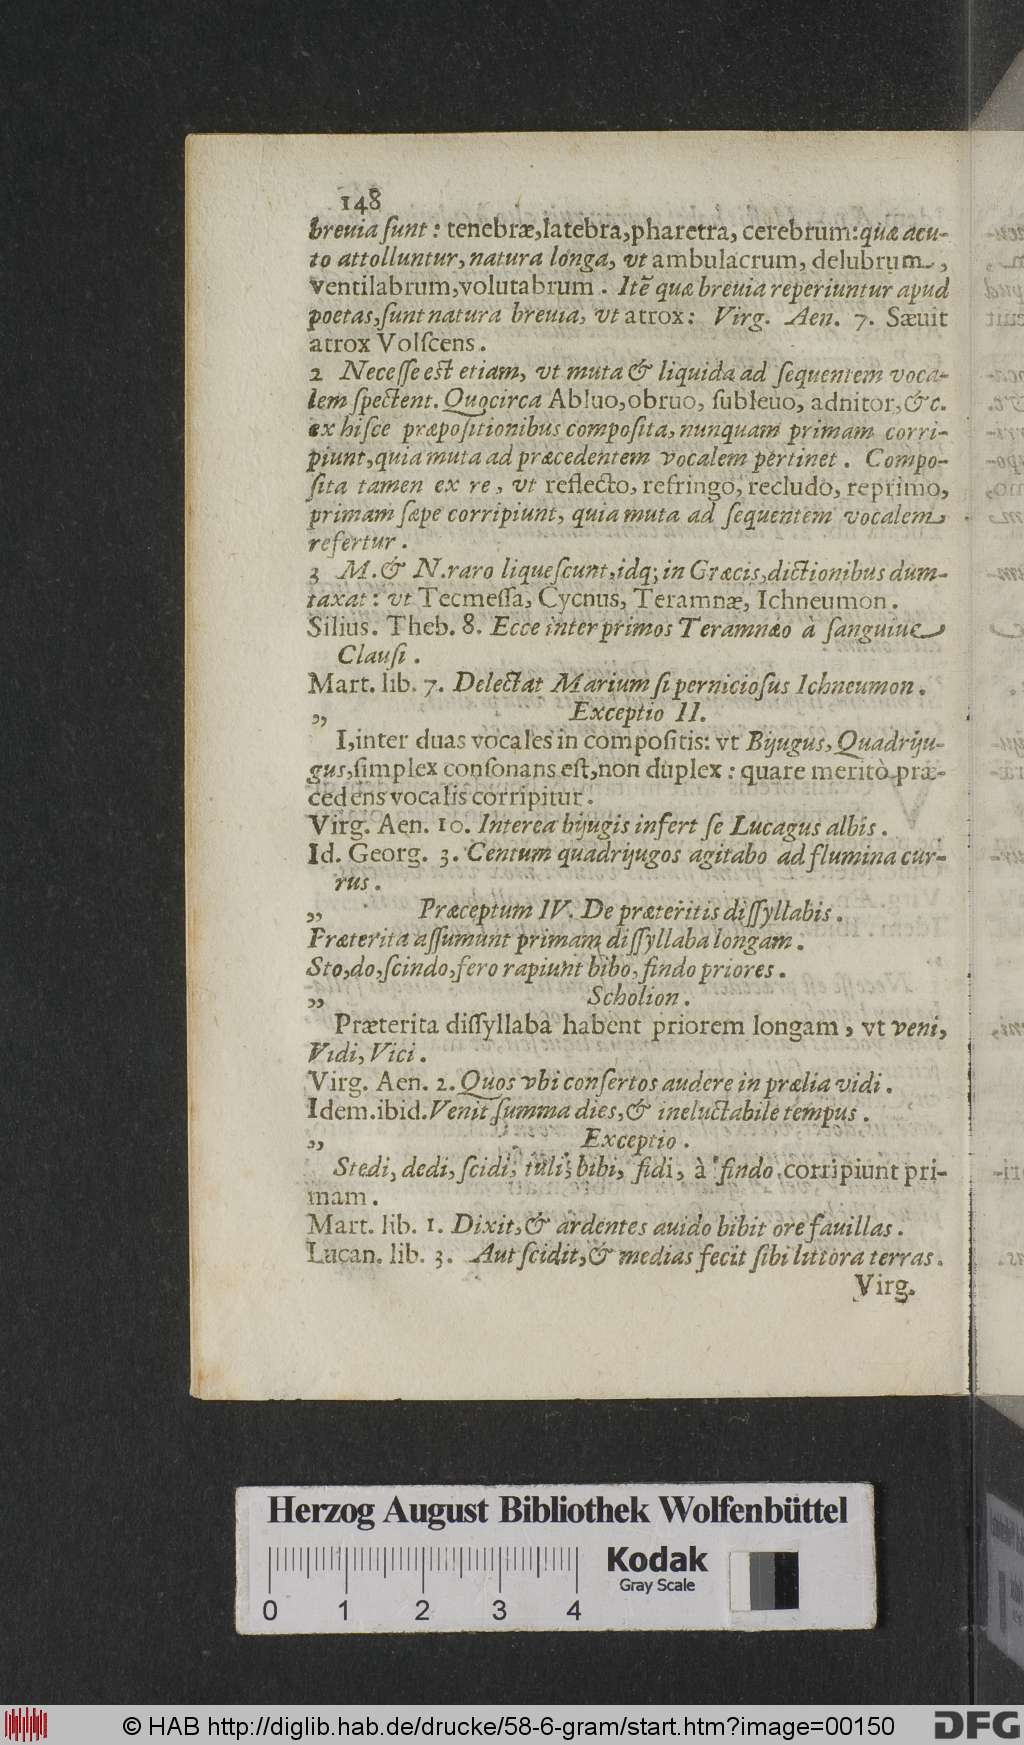 148
breuia ſunt: tenebræ, latebra, pharetra, cerebrum: quæ acu-
to attolluntur, natura longa, vt ambulacrum, delubrum,
ventilabrum, volutabrum. Itē quæ breuia reperiuntur apud
poetas, ſunt natura breuia, vt atrox: Virg. Aen. 7. Sæuit
atrox Volſcens.
2 Neceſſe eſt etiam, vt muta & liquida ad ſequentem voca-
lem ſpectent. Quocirca Abluo, obruo, ſubleuo, adnitor, &c.
ex hiſce præpoſitionibus compoſita, nunquam primam corri-
piunt, quia muta ad præcedentem vocalem pertinet. Compo-
ſita tamen ex re, vt reflecto, refringo, recludo, reprimo,
primam ſæpe corripiunt, quia muta ad ſequentem vocalem
refertur.
3 M. & N. raro liqueſcunt, idq; in Græcis, dictionibus dum-
taxat: vt Tecmeſſa, Cycnus, Teramnæ, Ichneumon.
Silius. Theb. 8. Ecce inter primos Teramnæo à ſanguiue
Clauſi.
Mart. lib. 7. Delectat Marium ſi pernicioſus Ichneumon.
„ Exceptio II.
I, inter duas vocales in compoſitis: vt Bijugus, Quadriju-
gus, ſimplex conſonans eſt, non duplex: quare meritò præ-
cedens vocalis corripitur.
Virg. Aen. 10. Interea bijugis infert ſe Lucagus albis.
Id. Georg. 3. Centum quadrijugos agitabo ad flumina cur-
rus.
„ Præceptum IV. De præteritis diſſyllabis.
Præterita aſſumunt primam diſſyllaba longam.
Sto, do, ſcindo, fero rapiunt bibo, findo priores.
„ Scholion.
Præterita diſſyllaba habent priorem longam, vt veni,
Vidi, Vici.
Virg. Aen. 2. Quos vbi conſertos audere in prælia vidi.
Idem. ibid. Venit ſumma dies, & ineluctabile tempus.
„ Exceptio.
Stedi, dedi, ſcidi, tuli, bibi, fidi, à findo corripiunt pri-
mam.
Mart. lib. 1. Dixit, & ardentes auido bibit ore fauillas.
Lucan. lib. 3. Aut ſcidit, & medias fecit ſibi littora terras.
Virg.
Herzog August Bibliothek Wolfenbüttel
Kodak
Gray Scale
0 1 2 3 4
© HAB http://diglib.hab.de/drucke/58-6-gram/start.htm?image=00150
DFG